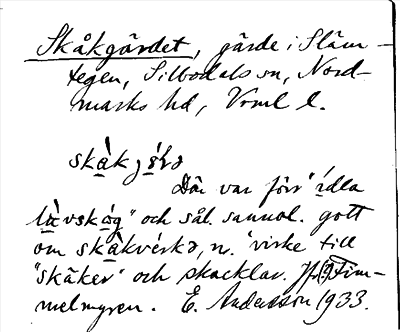 Skåkgärdet, gärde i Släm-
tegen, Silbodals sn, Nord-
marks hd, Vrml l.
skàk
Där var förr "idla
làvskog" och sål. sannol. gott
om skàkvérkə, n. 'virke till
"skäker" och skacklar. Jfr Tim-
melmyren. E. Andersson 1933.